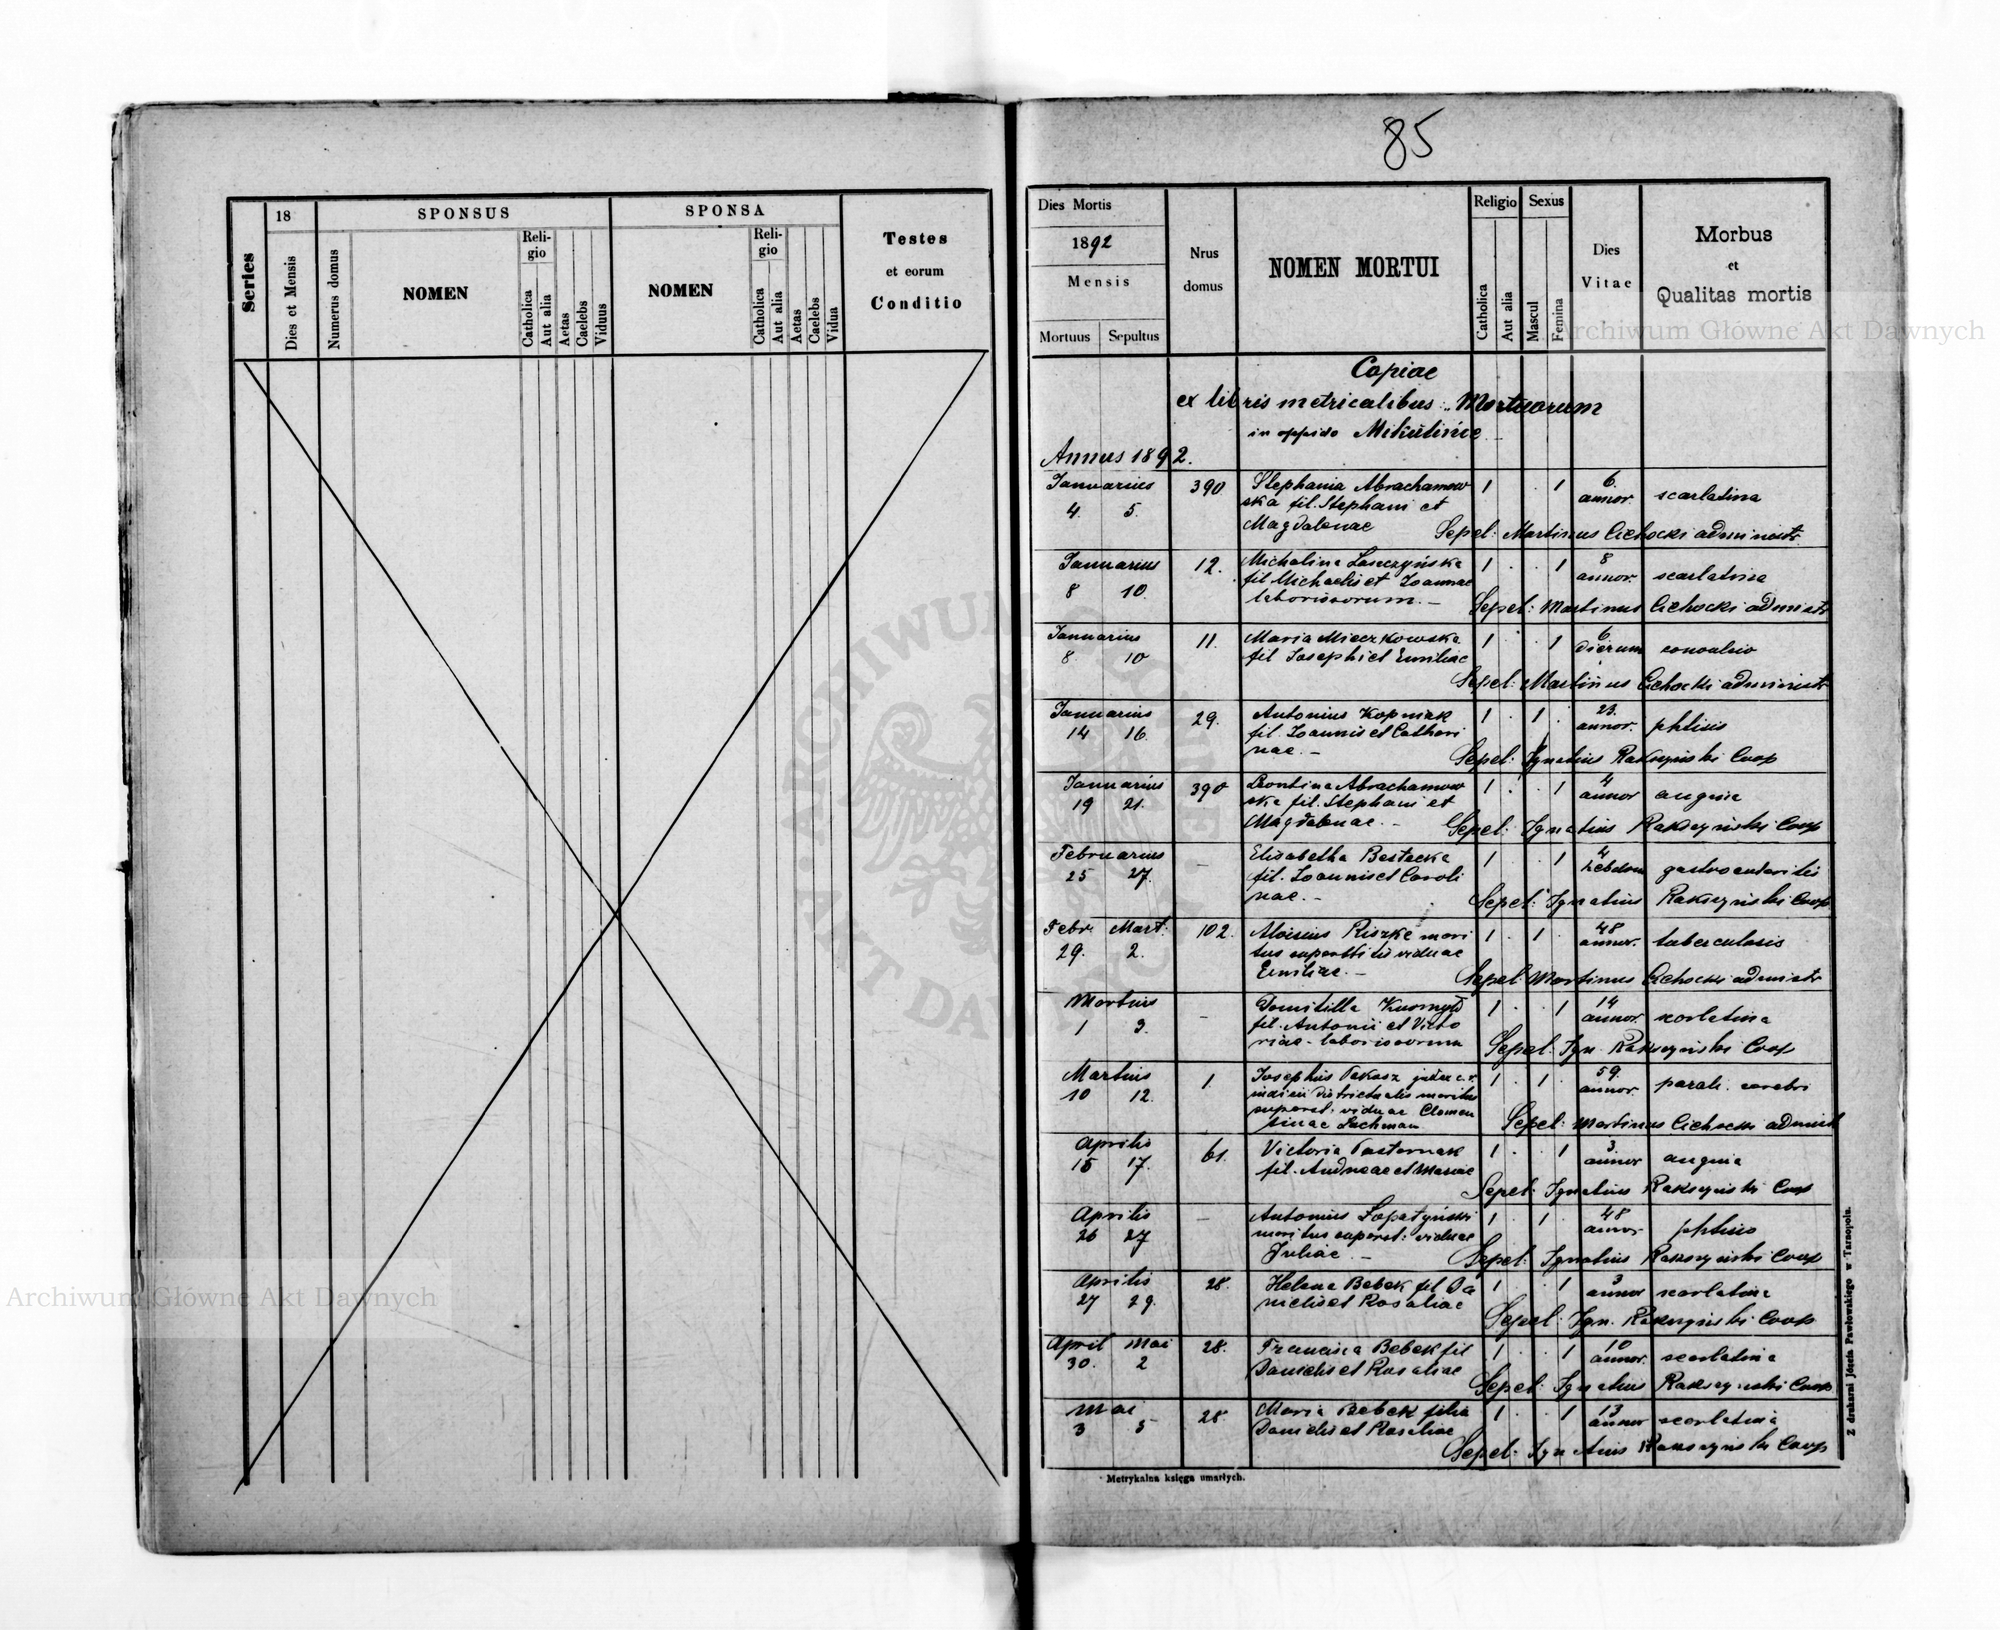 Series
18
Dies et Mensis
Numerus domus
SPONSUS
NOMEN
Reli-
gio
Catholica
Aut alia
Aetas
Caelebs
Viduus
SPONSA
NOMEN
Reli-
gio
Catholica
Aut alia
Aetas
Caelebs
Vidua
Testes
et eorum
Conditio
85
Dies Mortis
1892
Mensis
Mortuus Sepultus
Nrus
domus
NOMEN MORTUI
Religio
Catholica
Aut alia
Sexus
Mascul
Femina
Dies
Vitae
Morbus
et
Qualitas mortis
Copiae
ex libris metricalibus: Mortuorum
in oppido Mikulińce
Annus 1892.
Januarius 390 Stephania Abrachamow 1 . . 1 6. annor. scarlatina
4. 5. ska fil. Stephani et
Magdalenae Sepel: Martinus Cichocki administr.
Januarius 12. Michalina 1 . . 1 8 annor. scarlatina
8 10. fil Michaelis et Joannae
laborissorum. – Sepel: Martinus Cichocki administr
Januarius 11. Maria Mieczkowska 1 . . 1 6 dierum convulsio
8. 10 fil Josephi et Emiliae
Sepel: Martinus Cichocki administr
Januarius 29. Antonius Kopniak 1 . 1 . 23. annor. phtisis
14 16. fil. Joannis et Cathari
nae. – Sepel: Ignatius Coop
Januarius 390 Leontina Abrachamow 1 . . 1 4 annor angina
19 21. ska fil. Stephani et
Magdalenae. – Sepel: Ignatius Coop
Februarius – Elisabetha 1 . . 1 4 hebdom gastroenteritis
25 27. fil. Joannis et Caroli
nae. – Sepel: Ignatius Coop
Febr. Mart. 102. Aloisius mari 1 . 1 . 48 annor. tuberculosis
29. 2. tus superstitis viduae
Emiliae. – Sepel Martinus Cichocki administr
Martius – Domitilla 1 . . 1 14 annor. scarlatina
1 3. fil. Antonii et Victo
riae - laborissorum Sepel: Ign. Coop
Martius 1. Josephus judex c. r. 1 . 1 . 59. annor. paral. cerebri
10 12. districtualis maritus
superst. viduae Clemen
tinae Lachman Sepel: Martinus Cichocki administ
Aprilis 61. Victoria Pasternak 1 . . 1 3. annor angina
15 17. fil. Andreae et Mariae
Sepel: Ignatius Coop
Aprilis – Antonius Łopatyński 1 . 1 . 48 annor phtisis
26 27 maritus superst: viduae
Juliae – Sepel: Ignatius Coop
Aprilis 28. Helena Bebek fil Da 1 . . 1 3 annor scarlatina
27 29. nielis et Rosaliae
Sepel: Ign. Coop
April Mai 28. Francisca Bebek fil 1 . . 1 10 annor. scarlatina
30. 2 Danielis et Rosaliae
Sepel: Ignatius Coop
Mai 28 Maria Bebek filia 1 . . 1 13 annor scarlatina
3 5 Danielis et Rosaliae
Sepel: Ignatius Coop
Metrykalna księga umarłych.
Z drukarni Józefa Pawłowskiego w Tarnopolu.
Archiwum Główne Akt Dawnych
Archiwum Główne Akt Dawnych